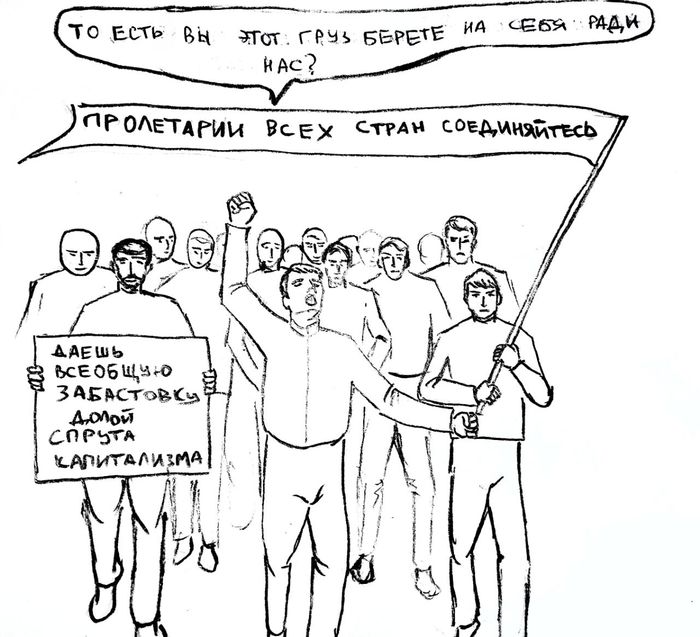 ТО ЕСТЬ ВЫ ЭТОТ ГРУЗ БЕРЕТЕ НА СЕБЯ РАДИ
НАС?
ПРОЛЕТАРИИ ВСЕХ СТРАН СОЕДИНЯЙТЕСЬ
ДАЕШЬ
ВСЕОБЩУЮ
ЗАБАСТОВКУ
ДОЛОЙ
СПРУТА
КАПИТАЛИЗМА